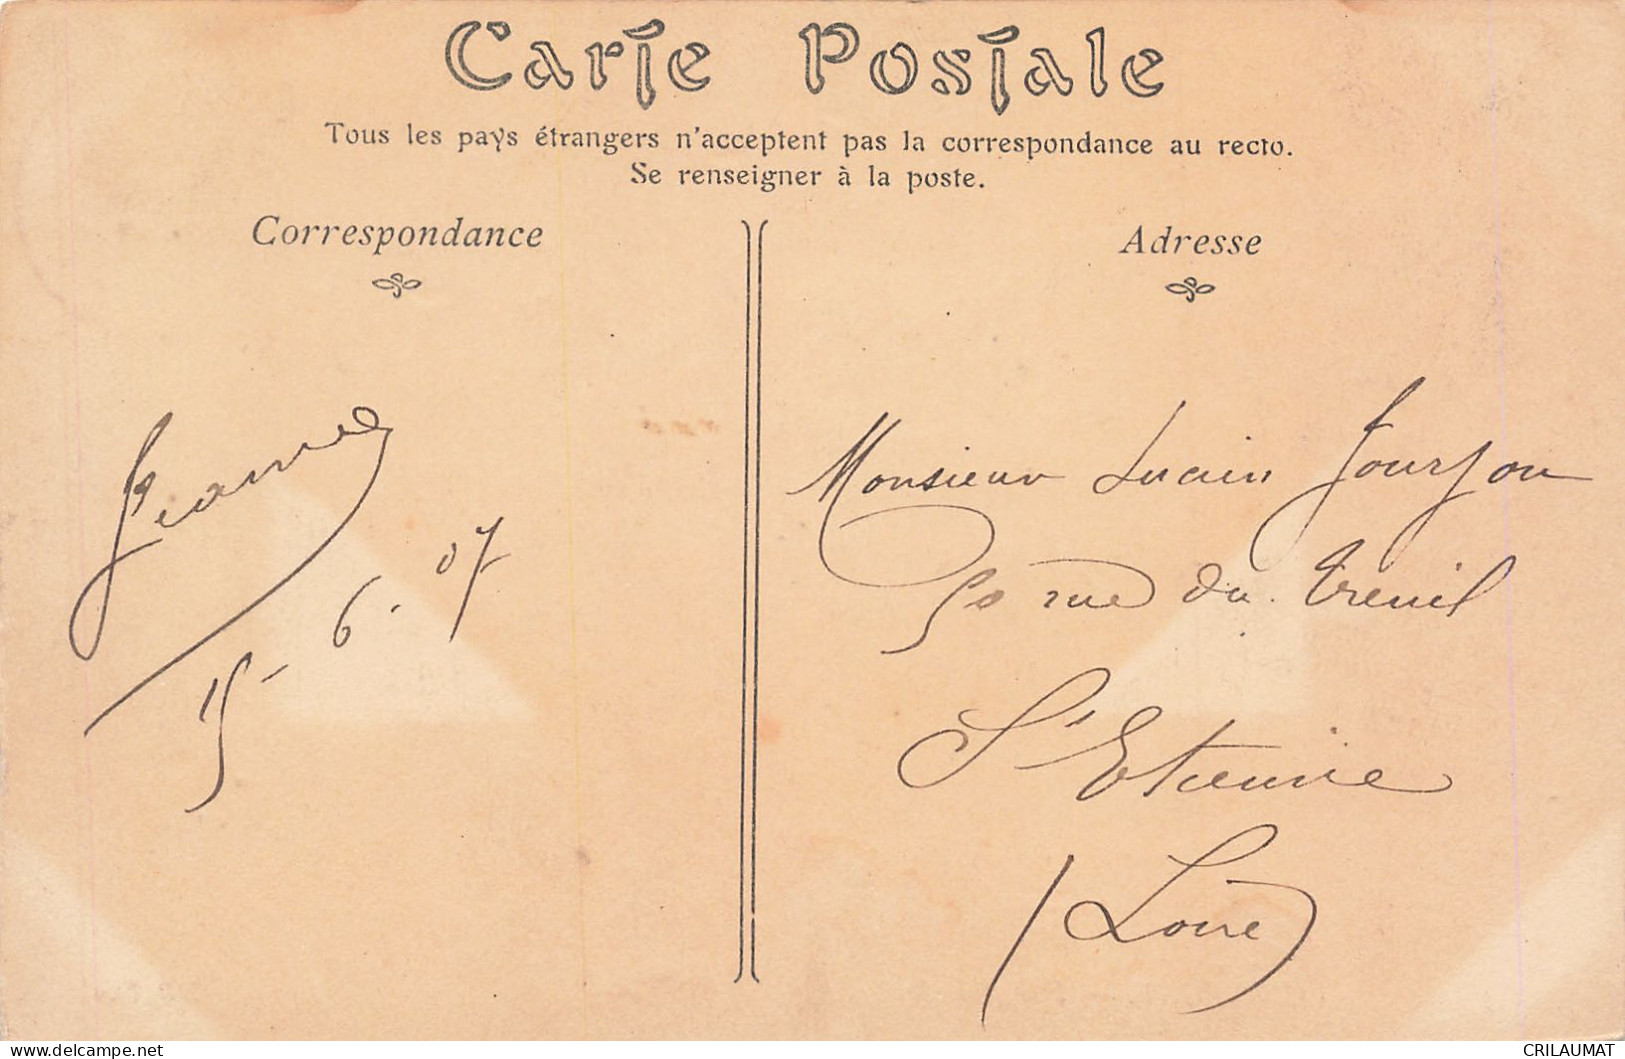 Carte Postale
Tous les pays étrangers n'acceptent pas la correspondance au recto.
Se renseigner à la poste.
Correspondance
Adresse
Jeanne
15-6-07
Monsieur Lucien Jourjon
50 rue du Treuil
St Etienne
(Loire)
delcampe.net
CRILAUMAT